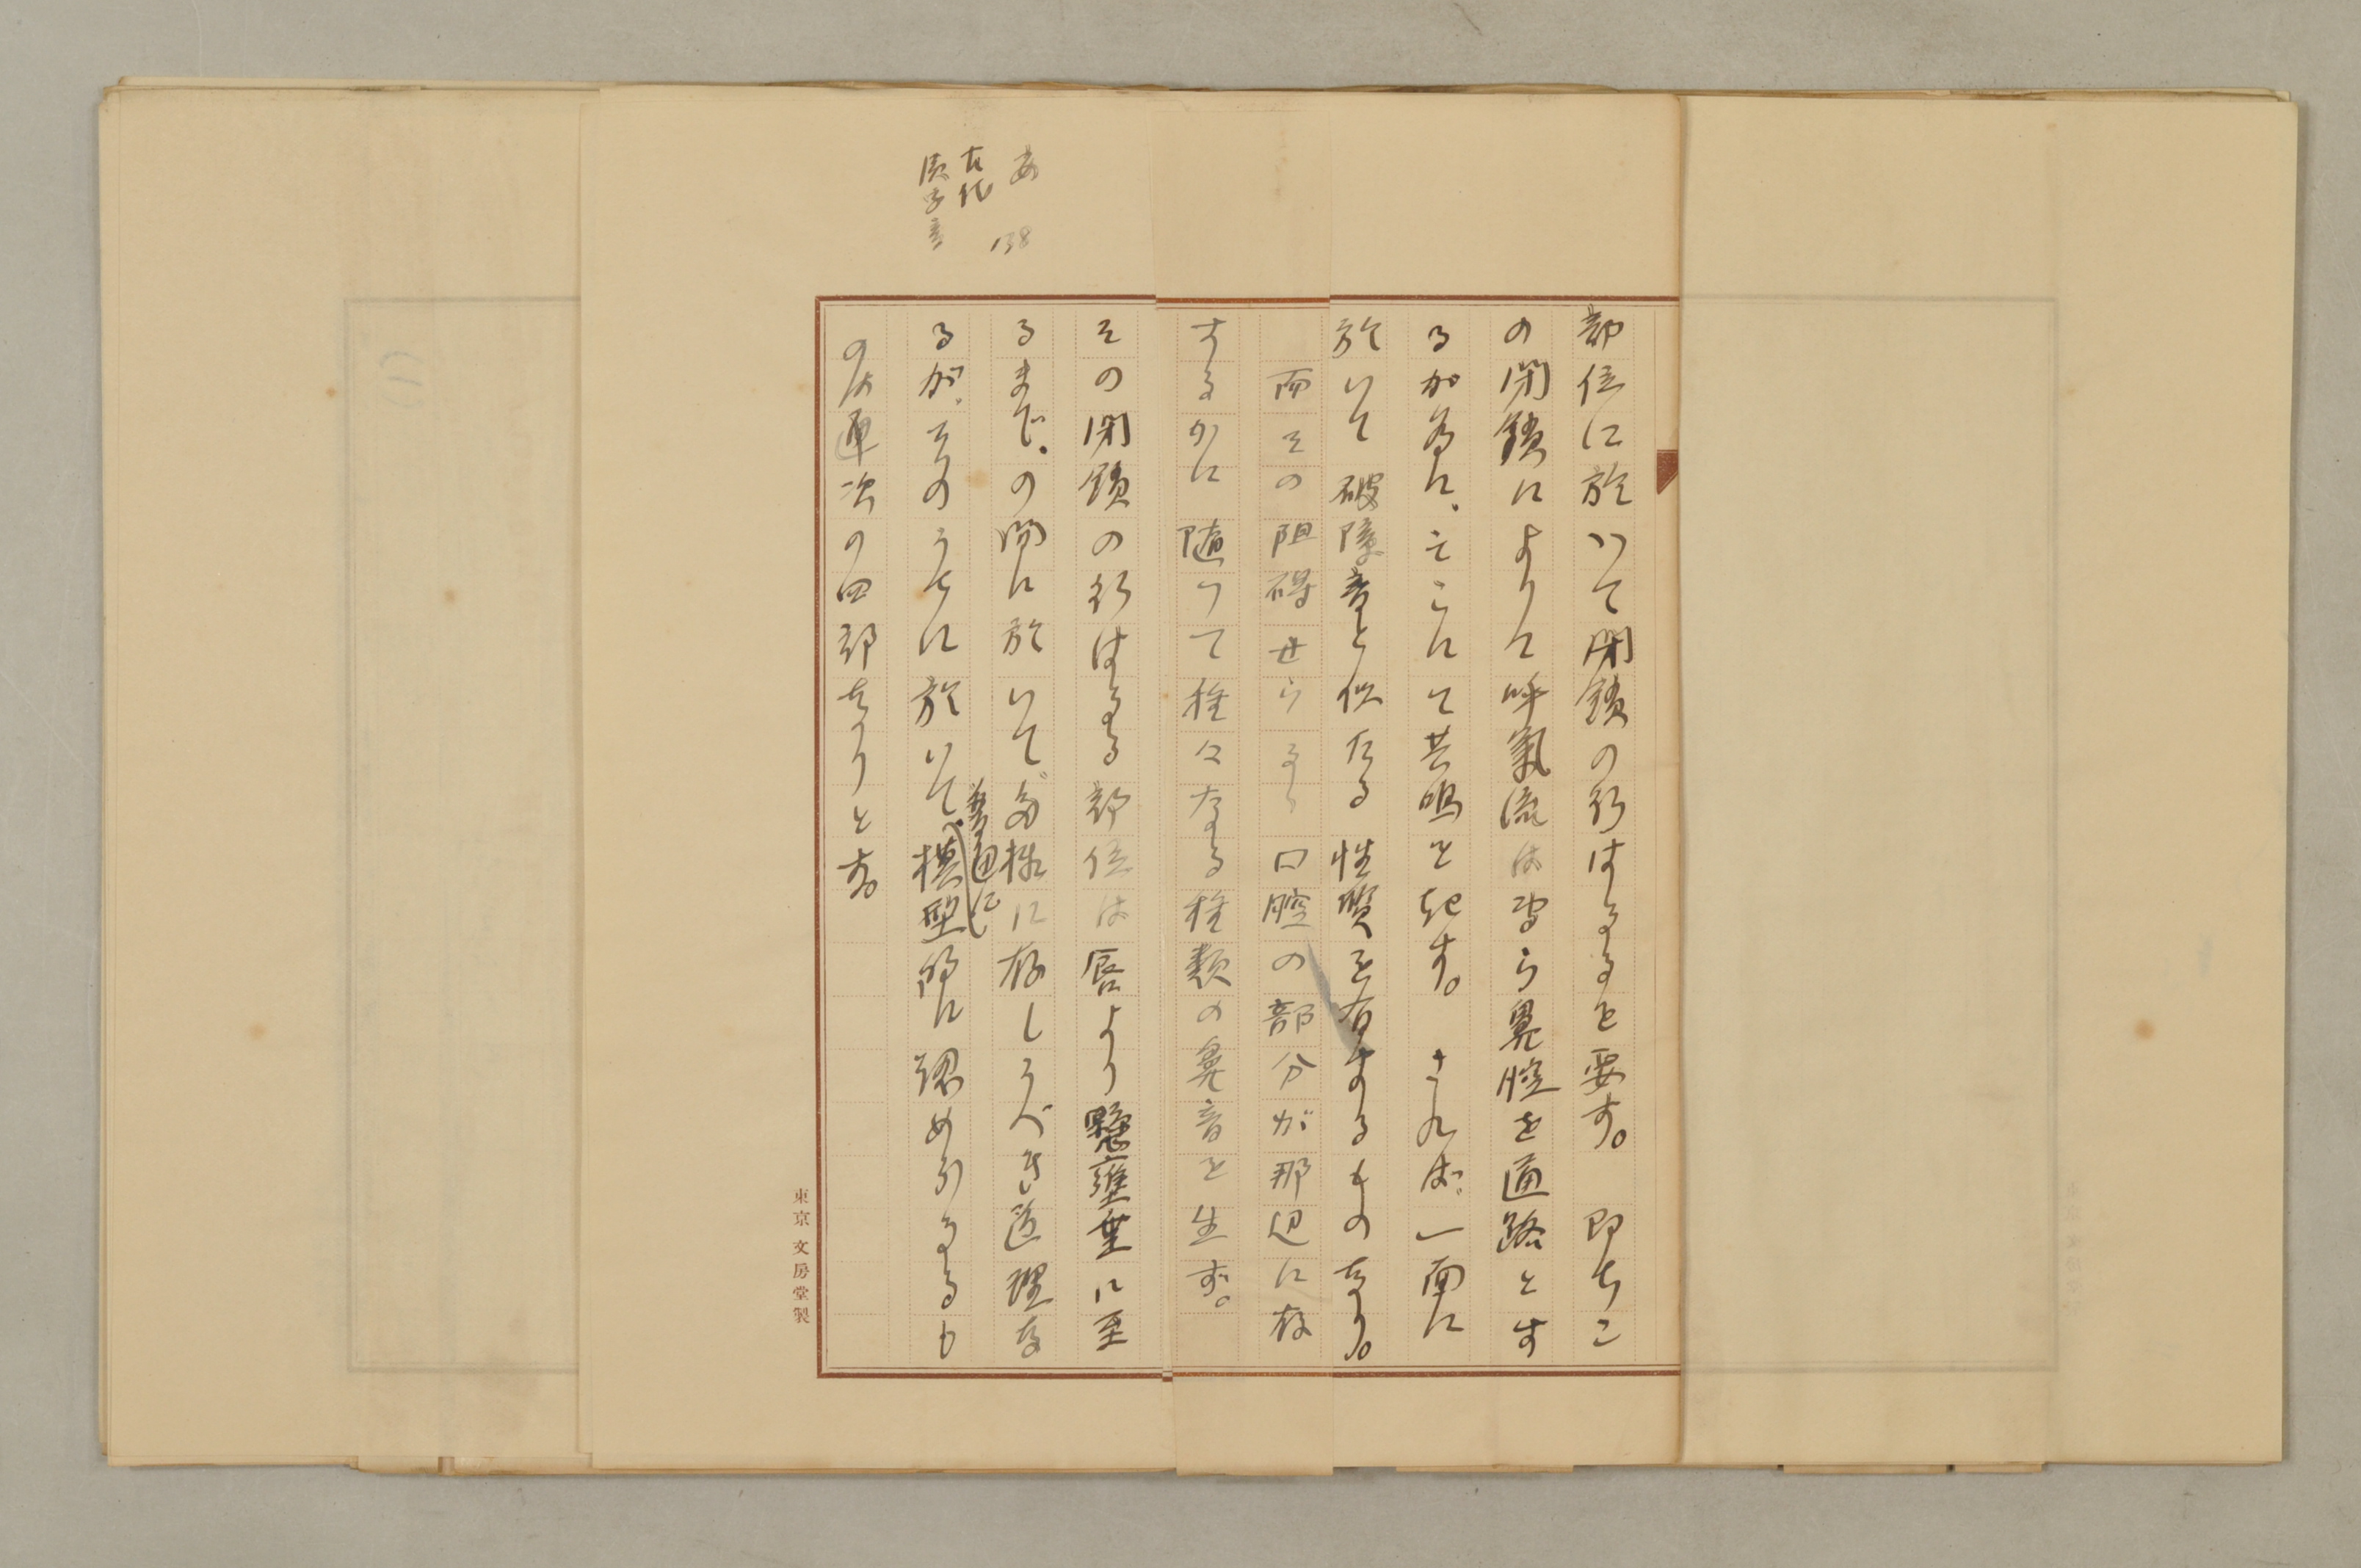 部位に於いて閉鎖の行はるるを要す。 即ちこ
の閉鎖によりて呼氣流は専ら鼻腔を通路とす
るが為に、そこにて共鳴を起す。 されば一面に
於いて破障音と似たる性質を有するものなり。
而その阻碍せらるる口腔の部分が那辺に存
するかに随つて種々なる種類の鼻音を生ず。
その閉鎖の行はるる部位は唇より懸壅垂に至
るまでの間に於いて多様に存しうべき道理な
るが、そのうちに於いて、普通に模型的に認めらるるも
のは通次の四部なりとす。
古代
138
東京 文房堂製